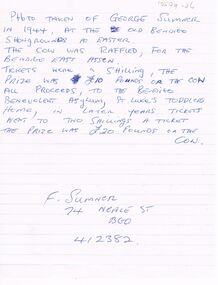 PHOTO TAKEN OF GEORGE SUMNER
IN 1944, AT THE OLD BENDIGO
SHOWGROUNDS AT EASTER
THE COW WAS RAFFLED, FOR THE
BENDIGO EAST ASSEN.
TICKETS WERE A SHILLING, THE
PRIZE WAS £10 POUNDS OR THE COW
ALL PROCEEDS, TO THE BENDIGO
BENEVOLENT ASYLUM, ST LUKES TODDLERS
HOME, IN LATER YEARS TICKETS
WENT TO TWO SHILLINGS A TICKET
THE PRIZE WAS £20 POUNDS OR THE
COW.
F. SUMNER
74 NEALE ST
BGO
412382.